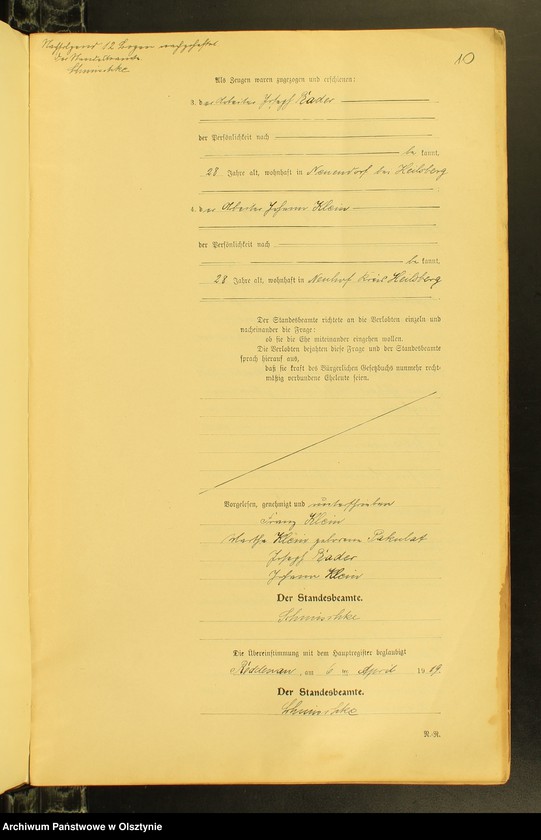 10
Der Standesbeamte
Schmischke
Als Zeugen waren zugezogen und erschienen:
3. der Arbeiter Josef Rader
der Persönlichkeit nach
be kannt,
28 Jahre alt, wohnhaft in Neuendorf bei Heilsberg
4. der Arbeiter Johann Klein
der Persönlichkeit nach
be kannt,
28 Jahre alt, wohnhaft in Neuhof Kreis Heilsberg
Der Standesbeamte richtete an die Verlobten einzeln und
nacheinander die Frage:
ob sie die Ehe miteinander eingehen wollen.
Die Verlobten bejahten diese Frage und der Standesbeamte
sprach hierauf aus,
daß sie kraft des Bürgerlichen Gesetzbuchs nunmehr recht-
mäßig verbundene Eheleute seien.
Vorgelesen, genehmigt und unterschrieben
Franz Klein
Klein geborene
Josef Rader
Johann Klein
Der Standesbeamte.
Schmischke
Die Übereinstimmung mit dem Hauptregister beglaubigt
am 6 ten April 1919.
Der Standesbeamte.
Schmischke
N.-R.
Archiwum Państwowe w Olsztynie